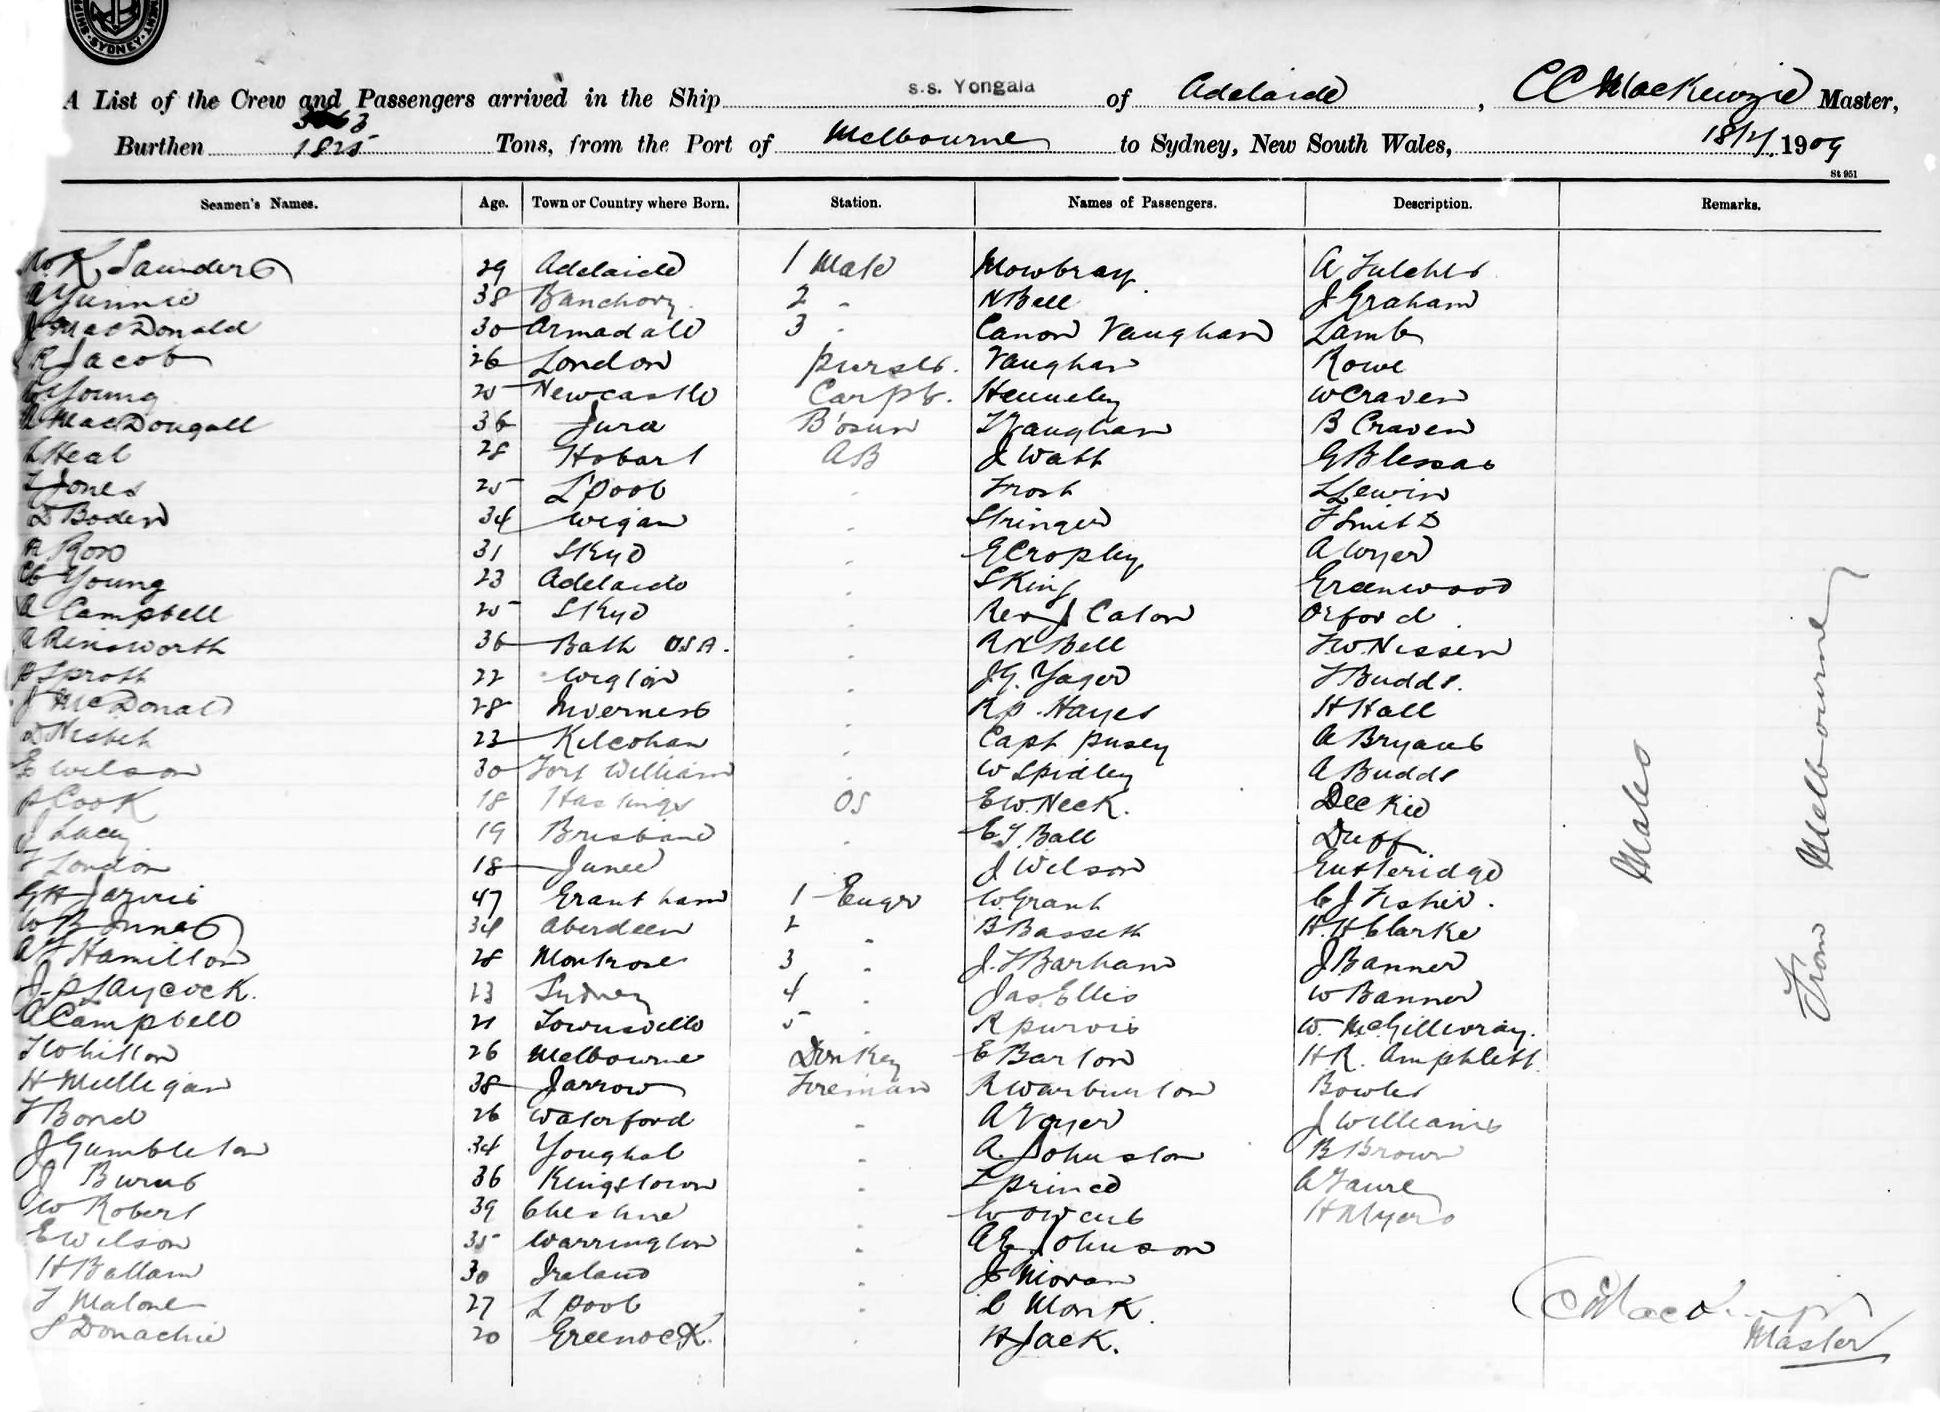 SYDNEY
A List of the Crew and Passengers arrived in the Ship s.s. Yongala of Adelaide, CC MacKenzie Master,
Burthen 1825 Tons, from the Port of Melbourne to Sydney, New South Wales, 1909
St 951
Seamen's Names. Age. Town or Country where Born. Station. Names of Passengers. Description. Remarks.
K Saunders 29 Adelaide 1 Mate Mowbray A
38 Banchory 2 " N Bell J Graham
J MacDonald 30 Armadale 3 " Canon Vaughan Lamb
R Jacob 26 London Purser. Vaughan Rowe
Young 25 Newcastle Carptr. W Craven
A MacDougall 36 Jura B'osun Vaughan B Craven
Heal 28 Hobart AB J Watt G
T Jones 25 L'pool " Frost L Lewin
D Boden 34 Wigan " Stringer F Smith
A Ross 31 Skye " G Cropley A Wyer
Young 23 Adelaide " S King Greenwood
A Campbell 25 Skye " Rev J Caton Orford
A Ainsworth 36 Bath USA. " A N Bell F.W. Nissen
P Sprott 22 Wigton " J.G. Yager F Budds.
J McDonald 28 Inverness " R P. Hayes H Hall
D Nesbit 23 Kilcohan " Capt Pusey A Bryant
E Wilson 30 Fort William " W Spidley A Budds
P Cook 18 Hastings OS E.W. Neck. Deckie
J Lacey 19 Brisbane " E.T. Ball Duff.
F London 18 Junee J Wilson Gutteridge
G H Jarvis 47 Grantham 1 Engr W. Grant C J Fisher.
W B Innes 34 Aberdeen 2 " B Bassett H.H. Clarke
A F Hamilton 28 Montrose 3 " J. F Barham J Banner
J. P Laycock. 23 Sydney 4 " Jas Ellis W Banner
A Campbell 21 Townsville 5 " R Purvis W. McGillivray.
T Whitton 26 Melbourne Donkey E Barton H.R. Amphlett
H Mulligan 38 Jarrow Fireman R Warburton Bowles
F Bond 26 Waterford " A Voyer J Williams
J Gumbleton 34 Youghal " A. Johnston B Brown
J Burns 36 Kingstown " L Prince A Faure
W Robert 39 Cheshire " H Myers
E Wilson 35 Warrington " A E Johnson
H Ballam 30 Ireland " J Moran
T Malone 27 L pool " C Monk.
S Donachie 20 Greenock. " H Jack.
Males
From Melbourne
Master